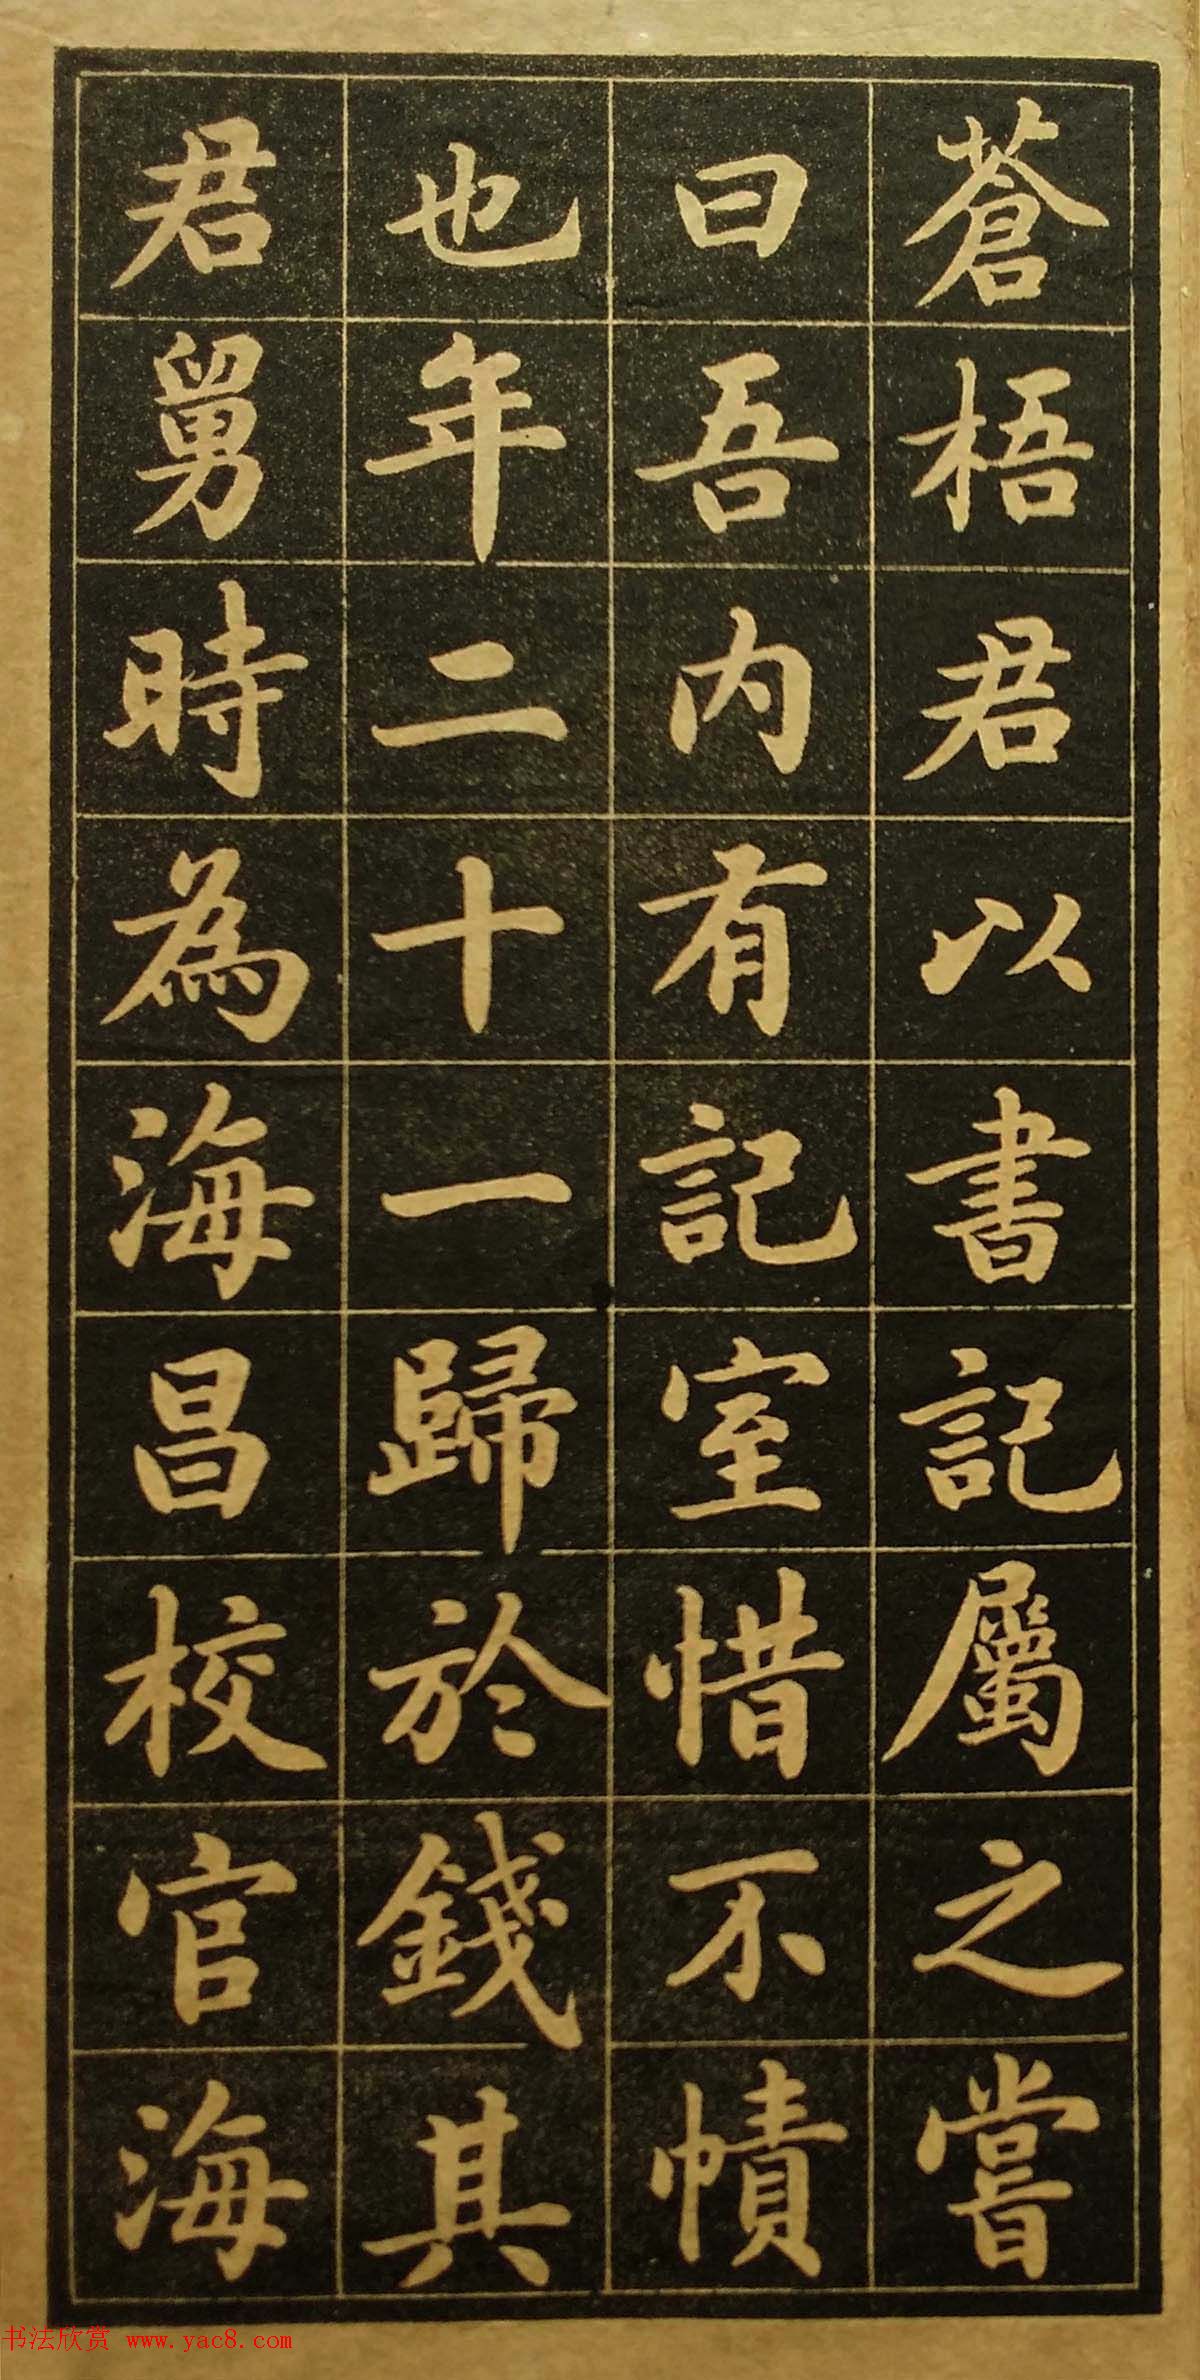 蒼梧君以書記屬之嘗
曰吾内有記室惜不幘
也年二十一歸於錢其
君舅時為海昌校官海
书法欣赏 www.yac8.com